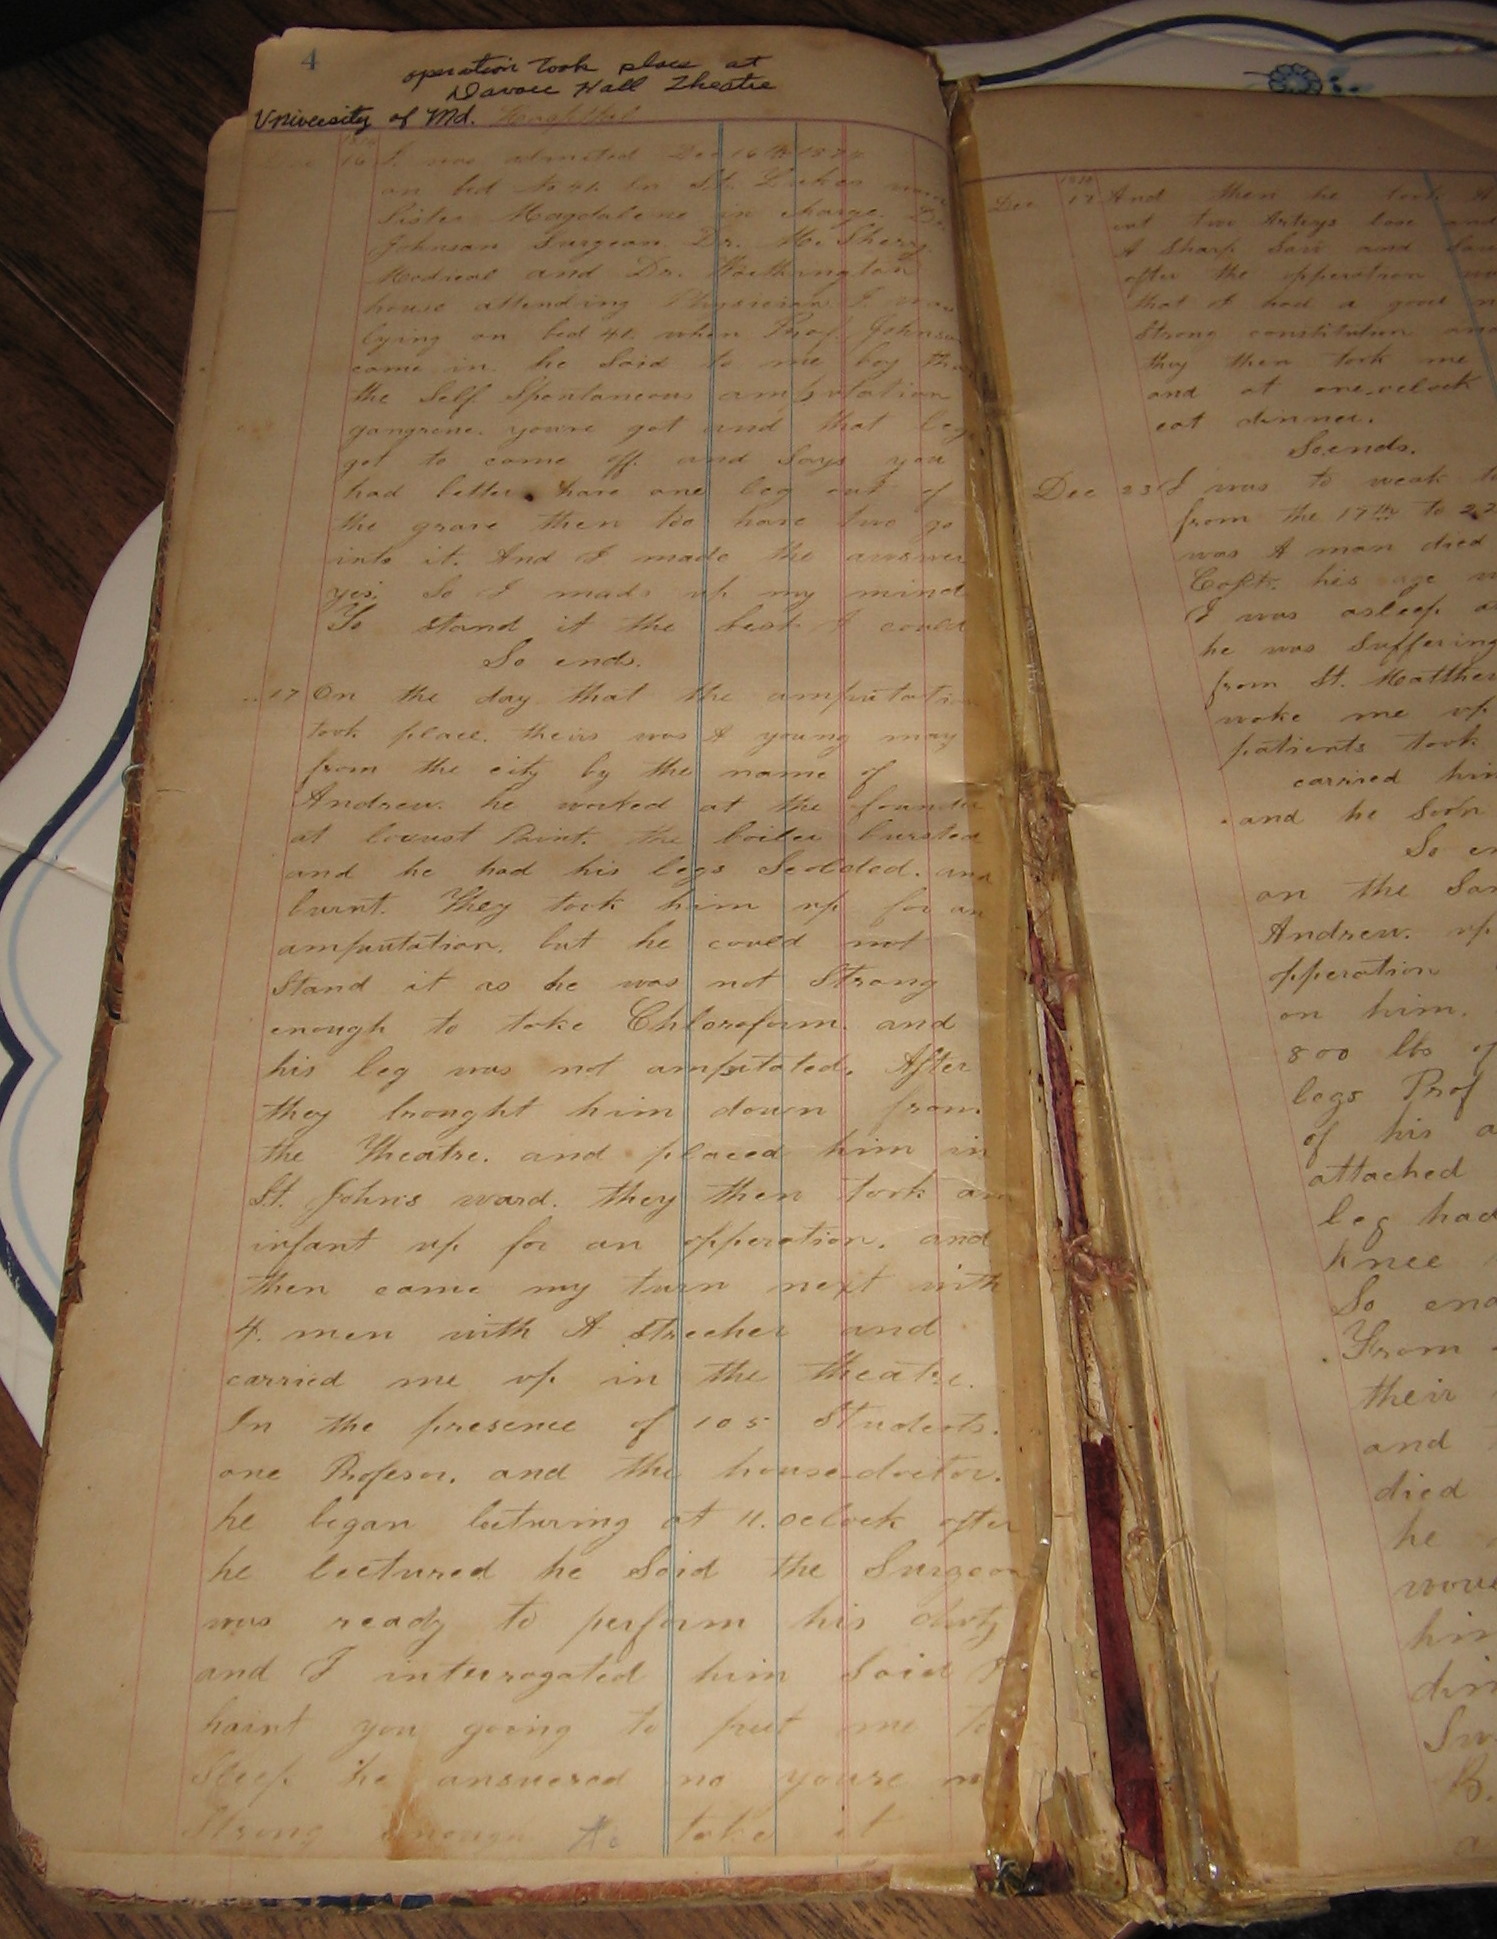 4
operation took place at
Davage Hall Theatre
University of Md. Hospital
Dec 16 I was admitted Dec 16th 187
on bed No 41. in St. Lukes
Sister Magdalene in charge. Dr.
Johnson Surgeon. Dr. Mc Sherry.
Medical and Dr. Worthington
house attending Physician. I was
lying on bed 41. when Prof. Johnson
came in. he Said to me boy
the Self Spontaneous amputation
gangrene. youre got and that leg
got to come off. and Says you
had better have one leg out of
the grave then too have two go
into it. And I made the answer
yes. So I made up my mind
To stand it the best I could
So ends.
" 17 On the day that the amputation
took place. theirs was A young may
from the city by the name of
Andrew. he worked at the
at locust Point. the boiler bursted
and he had his legs Scolded. and
burnt. They took him up for an
amputation. but he could not
Stand it as he was not Strong
enough to take Chloroform. and
his leg was not amputated. After
they brought him down from
the Theatre. and placed him in
St. John's ward. they then took an
infant up for an opperation. and
then came my turn next with
4. men with A Strecher and
carried me up in the theatre.
In the presence of 105 Students.
one Profesor. and the house doctor.
he began lecturing at 11. oclock after
he lectured he Said the Surgeon
was ready to perform his duty
and I interrogated him Said I
haint you going to put me to
Sleep he answered no youre
Strong enough to take it
Dec 17 And then he took A
cut two Arterys lose and
A Sharp Saw and
after the opperation
that I had a good
Strong constitution and
they then took me
and at one oclock
eat dinner.
So ends.
Dec 23 I was to weak to
from the 17th to 22
was A man died
Capt. his age
I was asleep
he was Suffering
from St. Matthew
woke me up
patients took
carried him
and he Soon
So
on the
Andrew. up
opperation
on him.
800 lbs of
legs Prof
of his
attached
leg had
Knee
So
From
their
and
died
he
B.